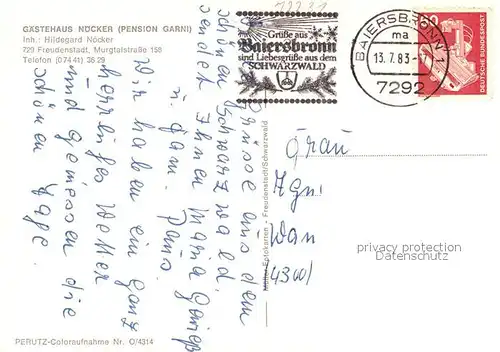 GÄSTEHAUS NÖCKER (PENSION GARNI)
Inh.: Hildegard Nöcker
729 Freudenstadt, Murgtalstraße 158
Telefon (07441) 3629
Grüße aus
Baiersbronn
sind Liebesgrüße aus dem
SCHWARZWALD
BAIERSBRONN 1
ma
13.7.83
7292
DEUTSCHE BUNDESPOST
Grüße aus dem
schönen Schwarzwald,
sendet Ihnen Maria
u. Fam.
Wir haben ein ganz
herrliches Wetter
und geniessen die
schönen Tage.
Frau
Agn.
(4300)
privacy protection
Datenschutz
Müller Fotokarten - Freudenstadt/Schwarzwald
PERUTZ-Coloraufnahme Nr. O/4314